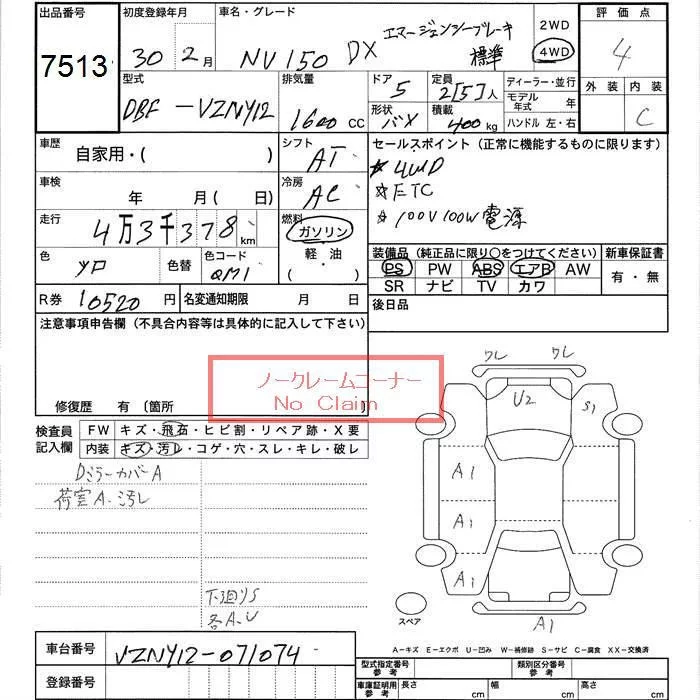 出品番号 初度登録年月 車名・グレード 2WD 評価点
7513 30 2月 NV150 DX エマージェンシーブレーキ 標準 4WD 4
型式 排気量 ドア 定員 ディーラー・並行 外装 内装
DBF-VZNY12 1600cc 5 2[5]人 モデル年式 年 C
形状 積載 ハンドル 左・右
バン 400kg
車歴 シフト セールスポイント(正常に機能するものに限ります)
自家用・( ) AT *4WD
車検 冷房 *ETC
年 月( 日) AC *100V100W電源
走行 燃料
4万3千378km ガソリン
色 色替 色コード 軽・油 装備品(純正品に限り○をつけてください) 新車保証書
QM1 ・( ) PS PW ABS エアB AW 有・無
SR ナビ TV カワ
R券 10520円 名変通知期限 月 日 後日品
注意事項申告欄(不具合内容等は具体的に記入して下さい)
ノークレームコーナー
No Claim
修復歴 有(箇所 )
検査員記入欄 FW キズ・飛石・ヒビ割・リペア跡・X要
内装 キズ・汚レ・コゲ・穴・スレ・キレ・破レ
DミラーカバーA
荷室A.汚レ
下廻りS
各A.U
ワレ ワレ
U2 S1
A1
A1
A1
A1
スペア
A-キズ E-エクボ U-凹み W-補修跡 S-サビ C-腐食 XX-交換済
車台番号 VZNY12-071074
登録番号
型式指定番号 参考 類別区分番号 参考
車庫証明用 参考 長さ cm 幅 cm 高さ cm